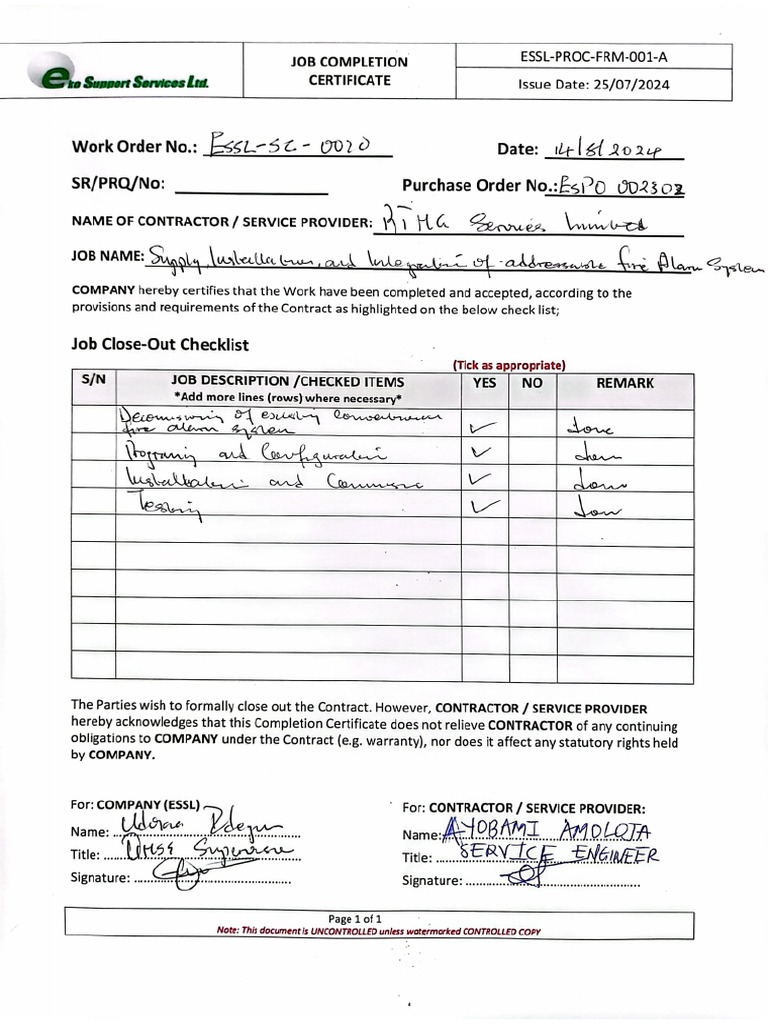 JOB COMPLETION
CERTIFICATE
ESSL-PROC-FRM-001-A
Issue Date: 25/07/2024
eko Support Services Ltd.
Work Order No.: ESSL-SC-0020
Date: 14/8/2024
SR/PRQ/No:
Purchase Order No.: ESPO 002302
NAME OF CONTRACTOR / SERVICE PROVIDER: Services Limited
JOB NAME: Supply, Installation, and Integration of addressable fire Alarm System
COMPANY hereby certifies that the Work have been completed and accepted, according to the
provisions and requirements of the Contract as highlighted on the below check list;
Job Close-Out Checklist
(Tick as appropriate)
S/N JOB DESCRIPTION /CHECKED ITEMS YES NO REMARK
*Add more lines (rows) where necessary*
Decomissioning of existing Conventional
fire alarm system ✓ done
Programing and Configuration ✓ done
Installation and ✓ done
Testing ✓ done
The Parties wish to formally close out the Contract. However, CONTRACTOR / SERVICE PROVIDER
hereby acknowledges that this Completion Certificate does not relieve CONTRACTOR of any continuing
obligations to COMPANY under the Contract (e.g. warranty), nor does it affect any statutory rights held
by COMPANY.
For: COMPANY (ESSL)
Name:
Title: QHSE Supervisor
Signature:
For: CONTRACTOR / SERVICE PROVIDER:
Name: AYOBAMI AMOLOJA
Title: SERVICE ENGINEER
Signature:
Page 1 of 1
Note: This document is UNCONTROLLED unless watermarked CONTROLLED COPY